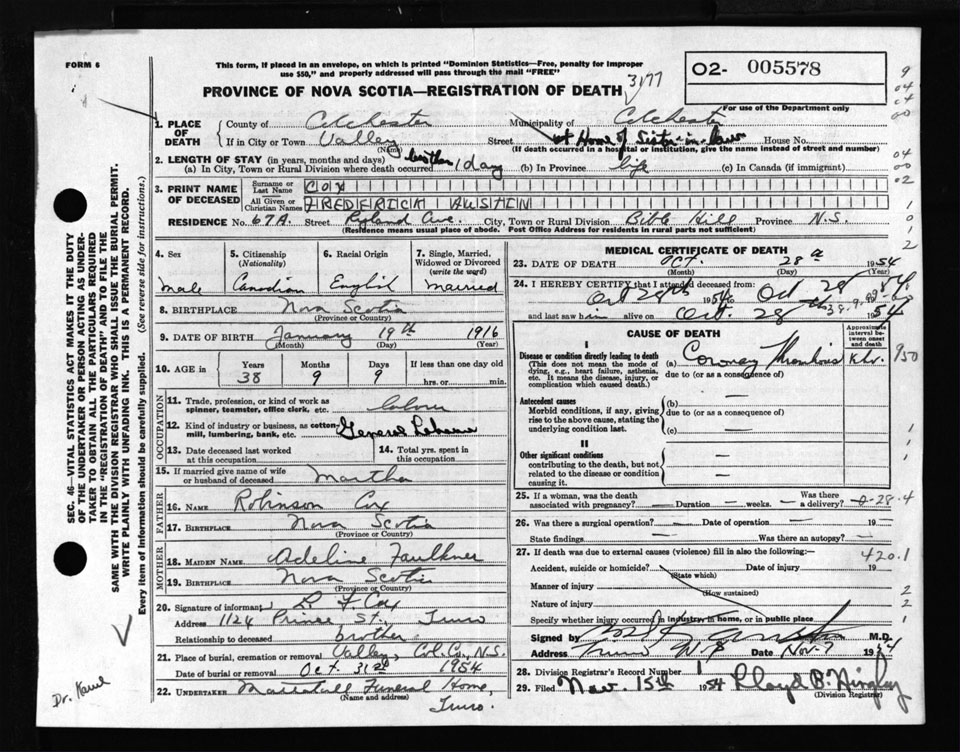 FORM 6
This form, if placed in an envelope, on which is printed "Dominion Statistics—Free, penalty for improper
use $50," and properly addressed will pass through the mail "FREE"
O2- 005578
For use of the Department only
PROVINCE OF NOVA SCOTIA—REGISTRATION OF DEATH
3177
1. PLACE OF DEATH
County of Colchester Municipality of Colchester
If in City or Town Valley (Name) Street at Home of Sister-in-law House No.
(If death occurred in a hospital or institution, give the name instead of street and number)
2. LENGTH OF STAY (in years, months and days)
(a) In City, Town or Rural Division where death occurred less than 1 day (b) In Province life (c) In Canada (if immigrant)
3. PRINT NAME OF DECEASED
Surname or Last Name COX
All Given or Christian Names FREDERICK AUSTIN
RESIDENCE No. 67A. Street Ryland Ave. City, Town or Rural Division Bible Hill Province N.S.
(Residence means usual place of abode. Post Office Address for residents in rural parts not sufficient)
4. Sex
male
5. Citizenship (Nationality)
Canadian
6. Racial Origin
English
7. Single, Married, Widowed or Divorced (write the word)
married
8. BIRTHPLACE Nova Scotia
(Province or Country)
9. DATE OF BIRTH January 19th 1916
(Month) (Day) (Year)
10. AGE in Years 38 Months 9 Days 9 If less than one day old hrs. or min.
OCCUPATION
11. Trade, profession, or kind of work as spinner, teamster, office clerk, etc. labour
12. Kind of industry or business, as cotton mill, lumbering, bank, etc. General
13. Date deceased last worked at this occupation
14. Total yrs. spent in this occupation
15. If married give name of wife or husband of deceased Martha
FATHER
16. NAME Robinson Cox
17. BIRTHPLACE Nova Scotia
(Province or Country)
MOTHER
18. MAIDEN NAME Adeline Faulkner
19. BIRTHPLACE Nova Scotia
(Province or Country)
20. Signature of informant R F Cox
Address 1124 Prince St., Truro
Relationship to deceased brother
21. Place of burial, cremation or removal Valley, Col. Co., N.S.
Date of burial or removal Oct. 31st 1954
22. UNDERTAKER Mattatall Funeral Home,
(Name and address)
Truro.
MEDICAL CERTIFICATE OF DEATH
23. DATE OF DEATH Oct. 28 1954
(Month) (Day) (Year)
24. I HEREBY CERTIFY that I attended deceased from:
Oct 28th 1954 to Oct 28 54
and last saw him alive on Oct. 28 1954
38.9.9
CAUSE OF DEATH
Approximate interval between onset and death
I
Disease or condition directly leading to death
(This does not mean the mode of dying, e.g., heart failure, asthenia, etc. It means the disease, injury, or complication which caused death.)
(a) Coronary Thrombosis
due to (or as a consequence of)
Antecedent causes
Morbid conditions, if any, giving rise to the above cause, stating the underlying condition last.
(b) —
due to (or as a consequence of)
(c) —
II
Other significant conditions
contributing to the death, but not related to the disease or condition causing it.
25. If a woman, was the death associated with pregnancy? — Duration — weeks. Was there a delivery?
26. Was there a surgical operation? — Date of operation — 19
State findings — Was there an autopsy? —
27. If death was due to external causes (violence) fill in also the following:—
420.1
Accident, suicide or homicide? Date of injury 19
(State which)
Manner of injury
(How sustained)
Nature of injury
Specify whether injury occurred in industry, in home, or in public place
Signed by M.D.
Address Truro N.S Date Nov. 7 1954
28. Division Registrar's Record Number 1
29. Filed Nov. 15th 1954 Lloyd B.
(Division Registrar)
SEC. 46—VITAL STATISTICS ACT MAKES IT THE DUTY
OF THE UNDERTAKER OR PERSON ACTING AS UNDER-
TAKER TO OBTAIN ALL THE PARTICULARS REQUIRED
IN THE "REGISTRATION OF DEATH" AND TO FILE THE
SAME WITH THE DIVISION REGISTRAR WHO SHALL ISSUE THE BURIAL PERMIT.
WRITE PLAINLY WITH UNFADING INK. THIS IS A PERMANENT RECORD.
Every item of information should be carefully supplied. (See reverse side for instructions.)